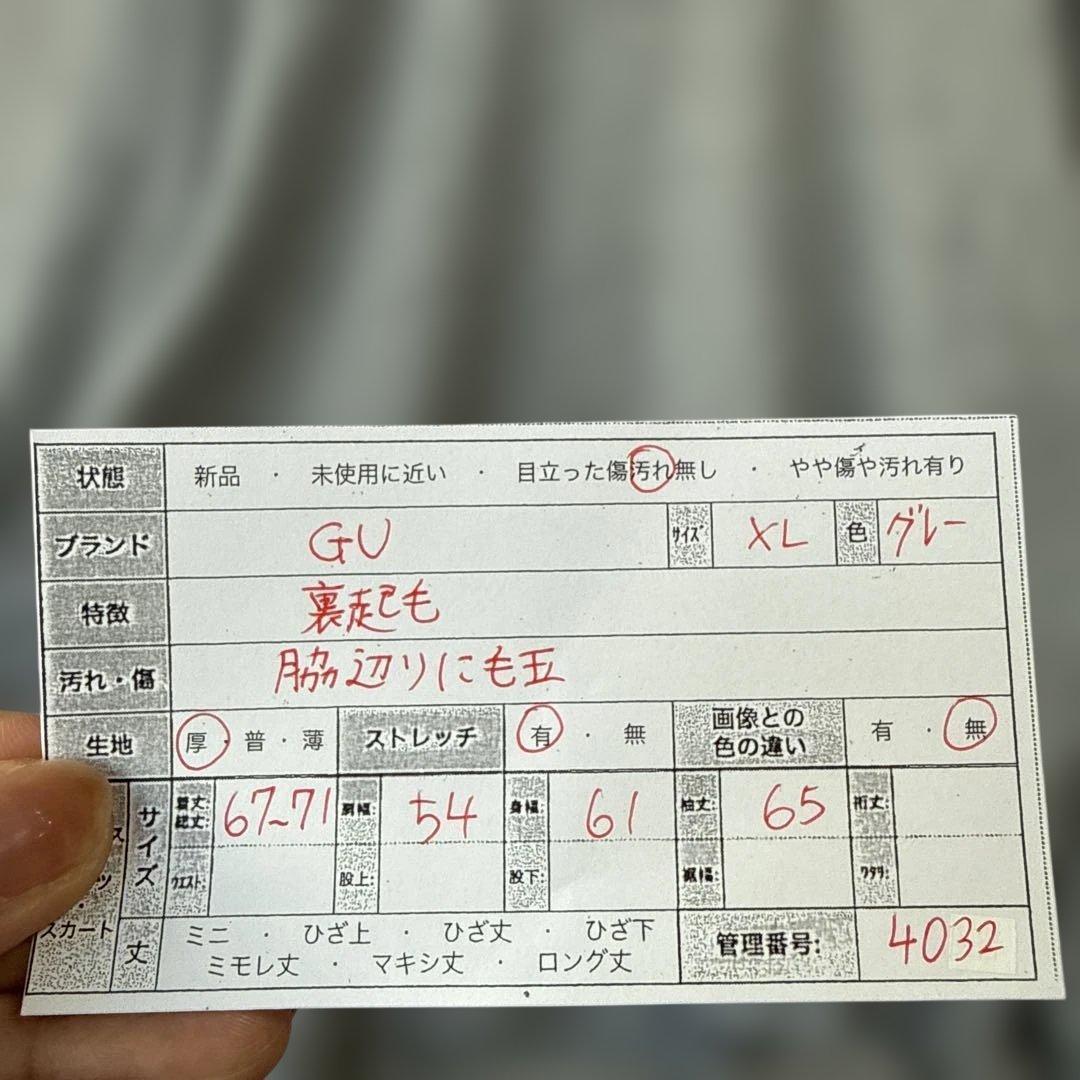 状態 新品 ・ 未使用に近い ・ 目立った傷汚れ無し ・ やや傷や汚れ有り
ブランド GU サイズ XL 色 グレー
特徴 裏起も
汚れ・傷 脇辺りにも玉
生地 厚・普・薄 ストレッチ 有 ・ 無 画像との色の違い 有 ・ 無
サイズ 着丈:総丈: 67~71 肩幅: 54 身幅: 61 袖丈: 65 裄丈:
ウエスト: 股上: 股下: 裾幅: ワタリ:
スカート 丈 ミニ ・ ひざ上 ・ ひざ丈 ・ ひざ下
ミモレ丈 ・ マキシ丈 ・ ロング丈 管理番号: 4032